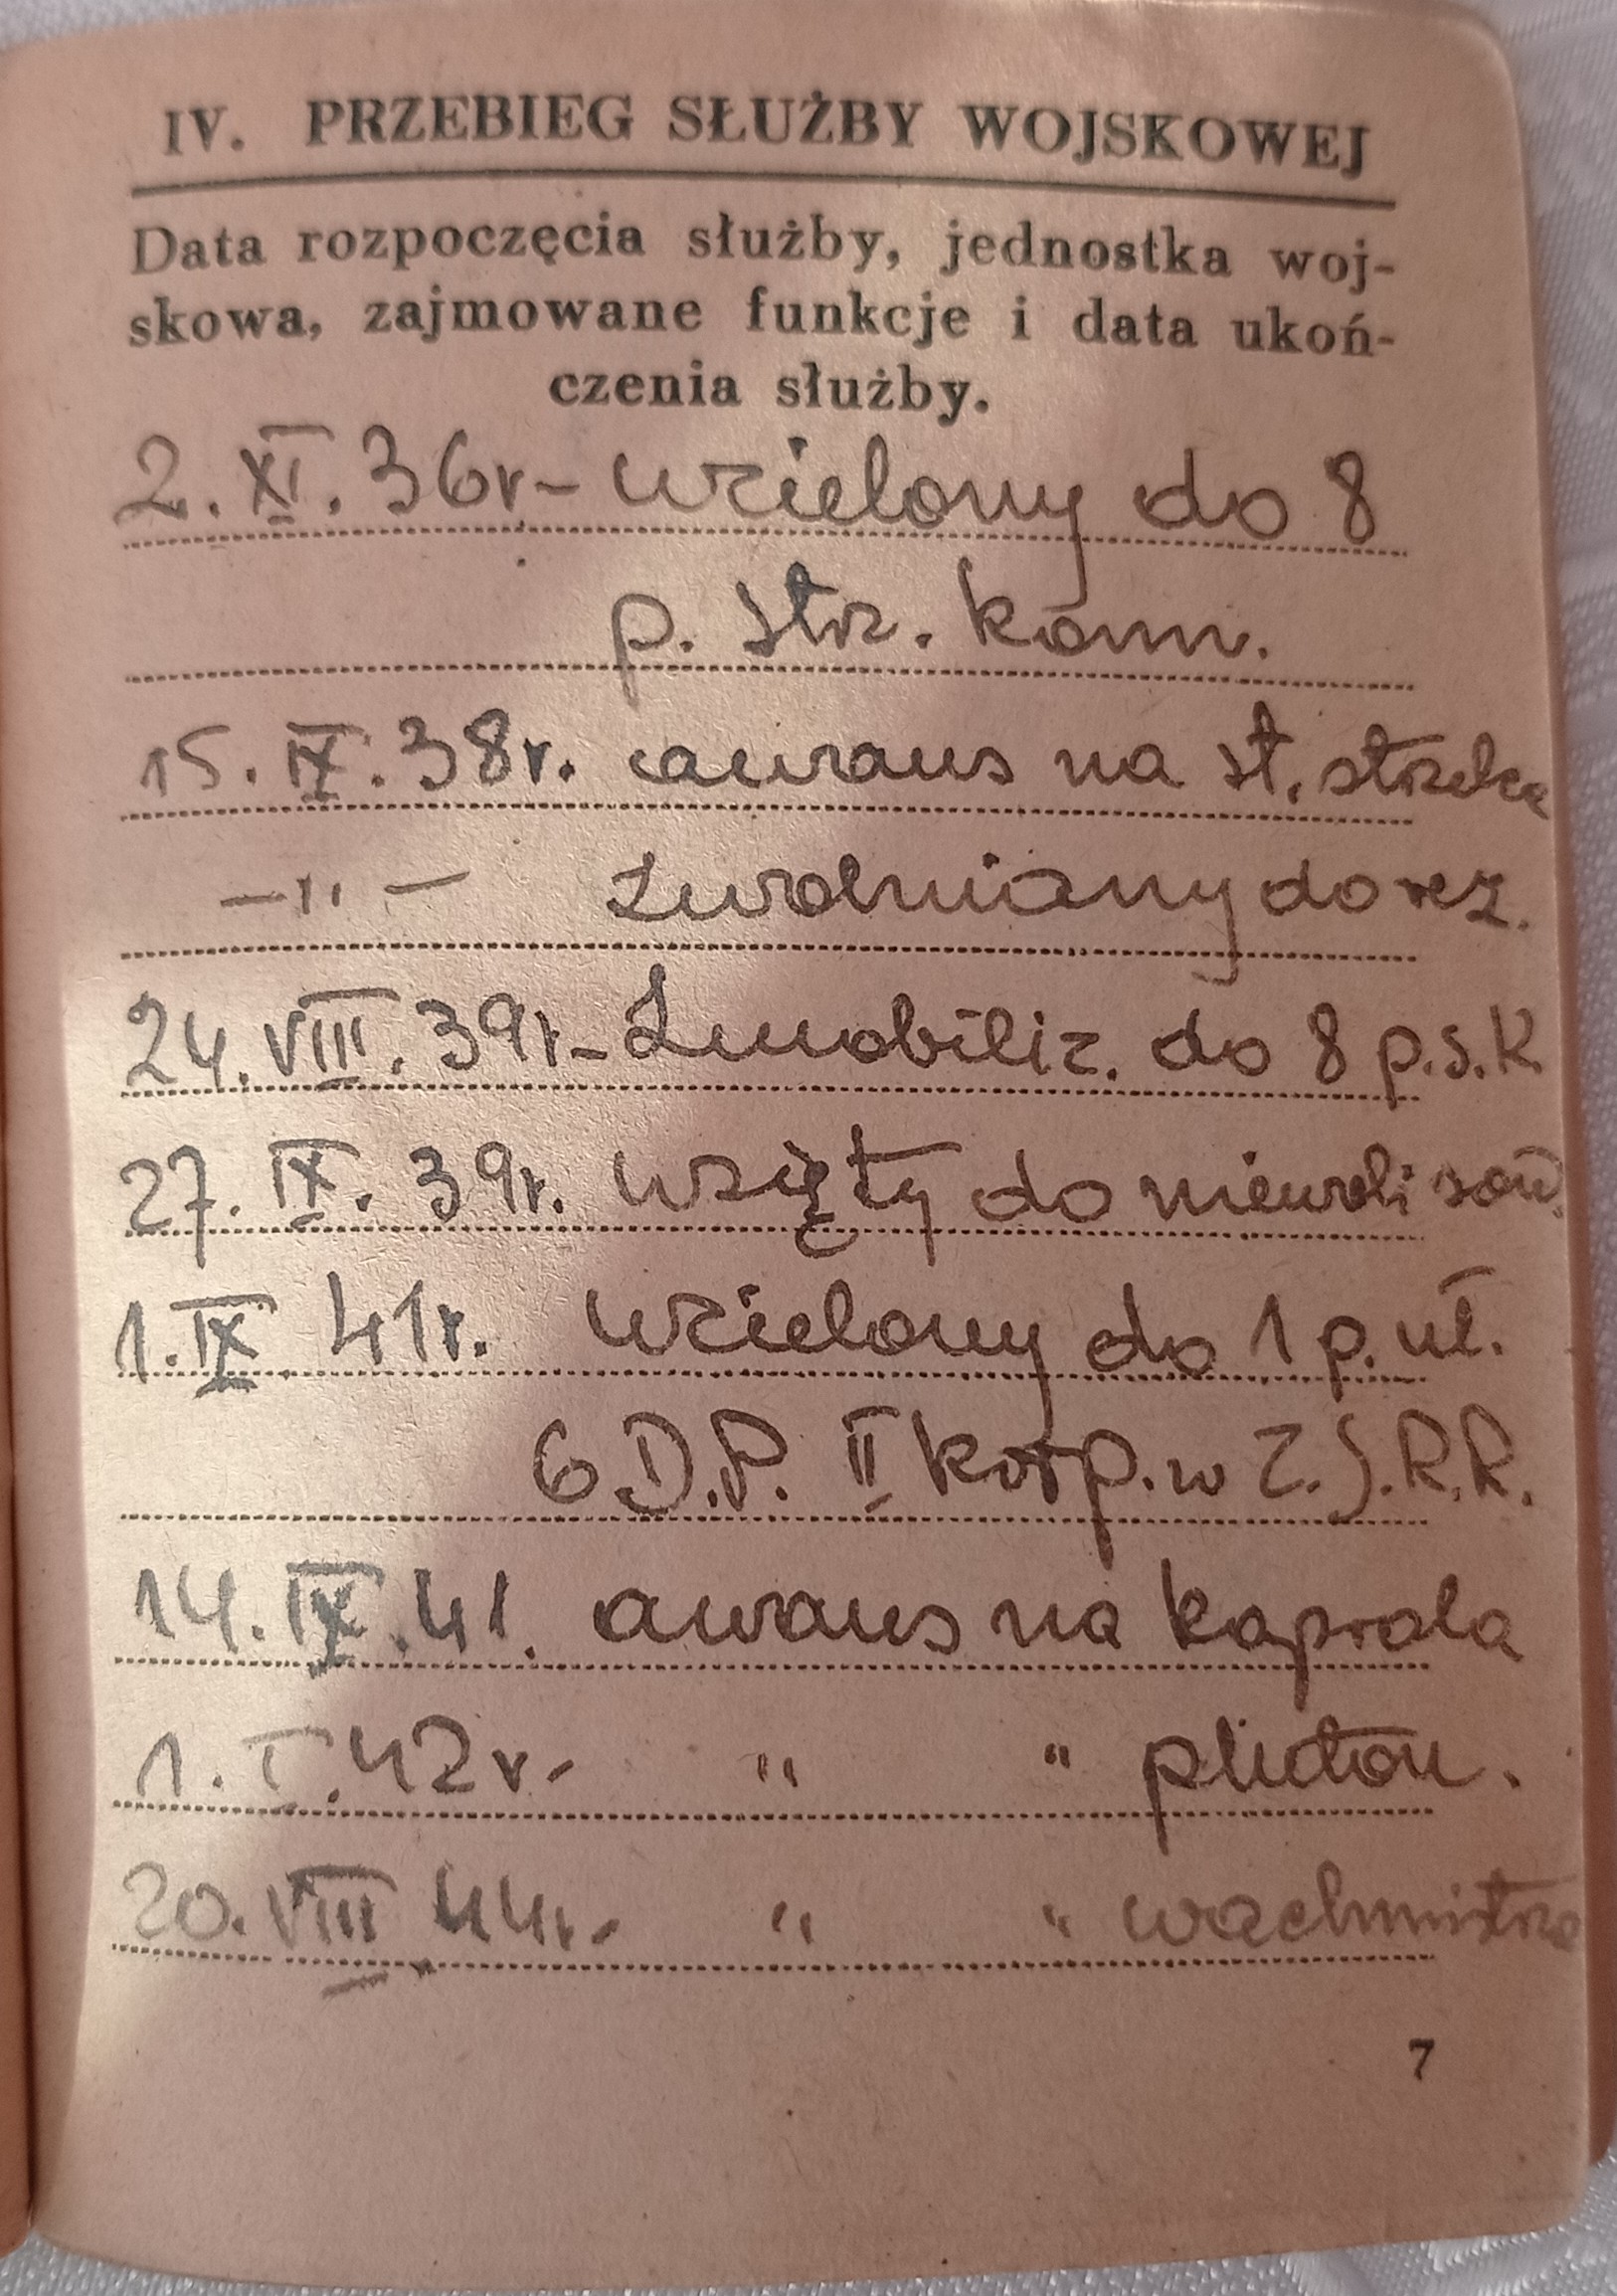 IV. PRZEBIEG SŁUŻBY WOJSKOWEJ
Data rozpoczęcia służby, jednostka woj-
skowa, zajmowane funkcje i data ukoń-
czenia służby.
2. XI. 36r - wcielony do 8
p. strz. konn.
15. IX. 38r. awans na st. strzelca
-"- Zwolniany do rez.
24. VIII. 39r - Zmobiliz. do 8 p.s.K
27. IX. 39r. wzięty do niewoli sow.
1. IX 41r. wcielony do 1 p. uł.
6 D.P. II korp. w Z.S.R.R.
14. IX. 41. awans na kaprala
1. I. 42r - " " pluton.
20. VIII 44r - " " wachmistrza
7